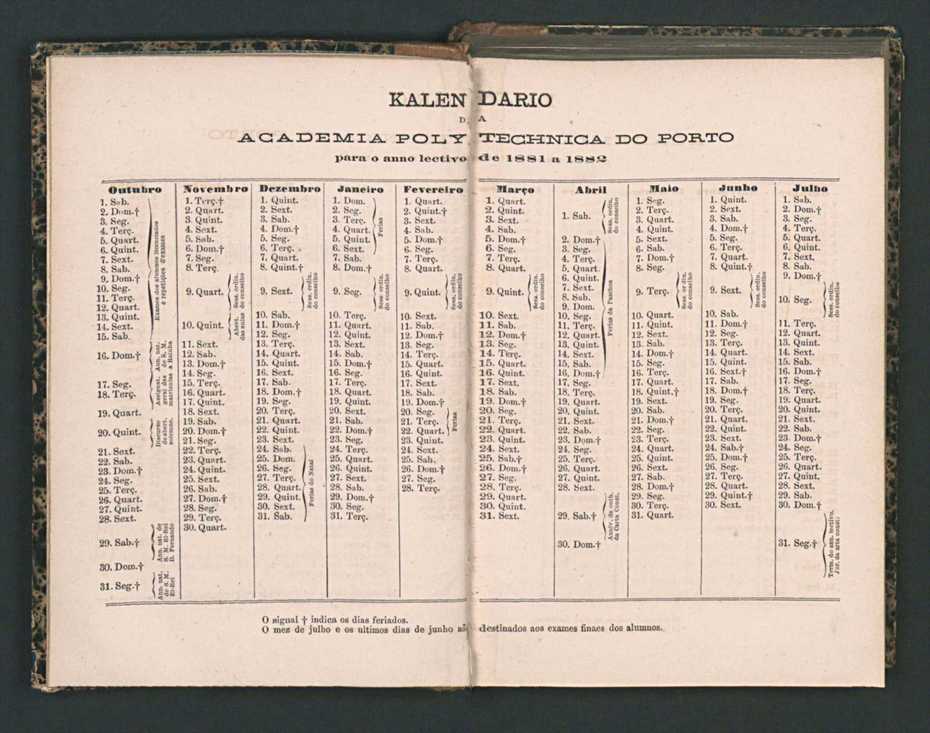 KALENDARIO
DA
ACADEMIA POLYTECHNICA DO PORTO
para o anno lectivo de 1881 a 1882
Outubro
1. Sab.
2. Dom.†
3. Seg.
4. Terç.
5. Quart.
6. Quint.
7. Sext.
8. Sab.
9. Dom.†
10. Seg.
11. Terç.
12. Quart.
13. Quint.
14. Sext.
15. Sab.
Exames dos alumnos internados
e repetições d'exames
16. Dom.†
Ann. nat.
de S. M.
a Rainha
17. Seg.
18. Terç.
Assignat.
geral das
matriculas
19. Quart.
20. Quint.
Discurso
de abert.
solemne.
21. Sext.
22. Sab.
23. Dom.†
24. Seg.
25. Terç.
26. Quart.
27. Quint.
28. Sext.
29. Sab.†
Ann. nat. de
S. M. El-Rei
D. Fernando
30. Dom.†
31. Seg.†
Ann. nat.
de S. M.
El-Rei
Novembro
1. Terç.†
2. Quart.
3. Quint.
4. Sext.
5. Sab.
6. Dom.†
7. Seg.
8. Terç.
9. Quart.
Sess. ordin.
do conselho
10. Quint.
Abert.
das aulas
11. Sext.
12. Sab.
13. Dom.†
14. Seg.
15. Terç.
16. Quart.
17. Quint.
18. Sext.
19. Sab.
20. Dom.†
21. Seg.
22. Terç.
23. Quart.
24. Quint.
25. Sext.
26. Sab.
27. Dom.†
28. Seg.
29. Terç.
30. Quart.
Dezembro
1. Quint.
2. Sext.
3. Sab.
4. Dom.†
5. Seg.
6. Terç.
7. Quart.
8. Quint.†
9. Sext.
Sess. ordin.
do conselho
10. Sab.
11. Dom.†
12. Seg.
13. Terç.
14. Quart.
15. Quint.
16. Sext.
17. Sab.
18. Dom.†
19. Seg.
20. Terç.
21. Quart.
22. Quint.
23. Sext.
24. Sab.
25. Dom.
26. Seg.
27. Terç.
28. Quart.
29. Quint.
30. Sext.
31. Sab.
Ferias do Natal
Janeiro
1. Dom.
2. Seg.
3. Terç.
4. Quart.
5. Quint.
6. Sext.
Ferias
7. Sab.
8. Dom.†
9. Seg.
Sess. ordin.
do conselho
10. Terç.
11. Quart.
12. Quint.
13. Sext.
14. Sab.
15. Dom.†
16. Seg.
17. Terç.
18. Quart.
19. Quint.
20. Sext.
21. Sab.
22. Dom.†
23. Seg.
24. Terç.
25. Quart.
26. Quint.
27. Sext.
28. Sab.
29. Dom.†
30. Seg.
31. Terç.
Fevereiro
1. Quart.
2. Quint.†
3. Sext.
4. Sab.
5. Dom.†
6. Seg.
7. Terç.
8. Quart.
9. Quint.
Sess. ordin.
do conselho
10. Sext.
11. Sab.
12. Dom.†
13. Seg.
14. Terç.
15. Quart.
16. Quint.
17. Sext.
18. Sab.
19. Dom.†
20. Seg.
21. Terç.
22. Quart.
Ferias
23. Quint.
24. Sext.
25. Sab.
26. Dom.†
27. Seg.
28. Terç.
Março
1. Quart.
2. Quint.
3. Sext.
4. Sab.
5. Dom.†
6. Seg.
7. Terç.
8. Quart.
9. Quint.
Sess. ordin.
do conselho
10. Sext.
11. Sab.
12. Dom.†
13. Seg.
14. Terç.
15. Quart.
16. Quint.
17. Sext.
18. Sab.
19. Dom.†
20. Seg.
21. Terç.
22. Quart.
23. Quint.
24. Sext.
25. Sab.†
26. Dom.†
27. Seg.
28. Terç.
29. Quart.
30. Quint.
31. Sext.
Abril
1. Sab.
Sess. ordin.
do conselho
2. Dom.†
3. Seg.
4. Terç.
5. Quart.
6. Quint.
7. Sext.
8. Sab.
9. Dom.
10. Seg.
11. Terç.
12. Quart.
13. Quint.
14. Sext.
15. Sab.
16. Dom.†
Ferias da Paschoa
17. Seg.
18. Terç.
19. Quart.
20. Quint.
21. Sext.
22. Sab.
23. Dom.†
24. Seg.
25. Terç.
26. Quart.
27. Quint.
28. Sext.
29. Sab.†
Anniv. da outh.
da Carta Const.
30. Dom.†
Maio
1. Seg.
2. Terç.
3. Quart.
4. Quint.
5. Sext.
6. Sab.
7. Dom.†
8. Seg.
9. Terç.
Sess. ordin.
do conselho
10. Quart.
11. Quint.
12. Sext.
13. Sab.
14. Dom.†
15. Seg.
16. Terç.
17. Quart.
18. Quint.†
19. Sext.
20. Sab.
21. Dom.†
22. Seg.
23. Terç.
24. Quart.
25. Quint.
26. Sext.
27. Sab.
28. Dom.†
29. Seg.
30. Terç.
31. Quart.
Junho
1. Quint.
2. Sext.
3. Sab.
4. Dom.†
5. Seg.
6. Terç.
7. Quart.
8. Quint.†
9. Sext.
Sess. ordin.
do conselho
10. Sab.
11. Dom.†
12. Seg.
13. Terç.
14. Quart.
15. Quint.
16. Sext.†
17. Sab.
18. Dom.†
19. Seg.
20. Terç.
21. Quart.
22. Quint.
23. Sext.
24. Sab.†
25. Dom.†
26. Seg.
27. Terç.
28. Quart.
29. Quint.†
30. Sext.
Julho
1. Sab.
2. Dom.†
3. Seg.
4. Terç.
5. Quart.
6. Quint.
7. Sext.
8. Sab.
9. Dom.†
10. Seg.
Sess. ordin.
do conselho
11. Terç.
12. Quart.
13. Quint.
14. Sext.
15. Sab.
16. Dom.†
17. Seg.
18. Terç.
19. Quart.
20. Quint.
21. Sext.
22. Sab.
23. Dom.†
24. Seg.
25. Terç.
26. Quart.
27. Quint.
28. Sext.
29. Sab.
30. Dom.†
31. Seg.†
Term. do ann. lectivo.
Jur. da arta const.
O signal † indica os dias feriados.
O mez de julho e os ultimos dias de junho são destinados aos exames finaes dos alumnos.